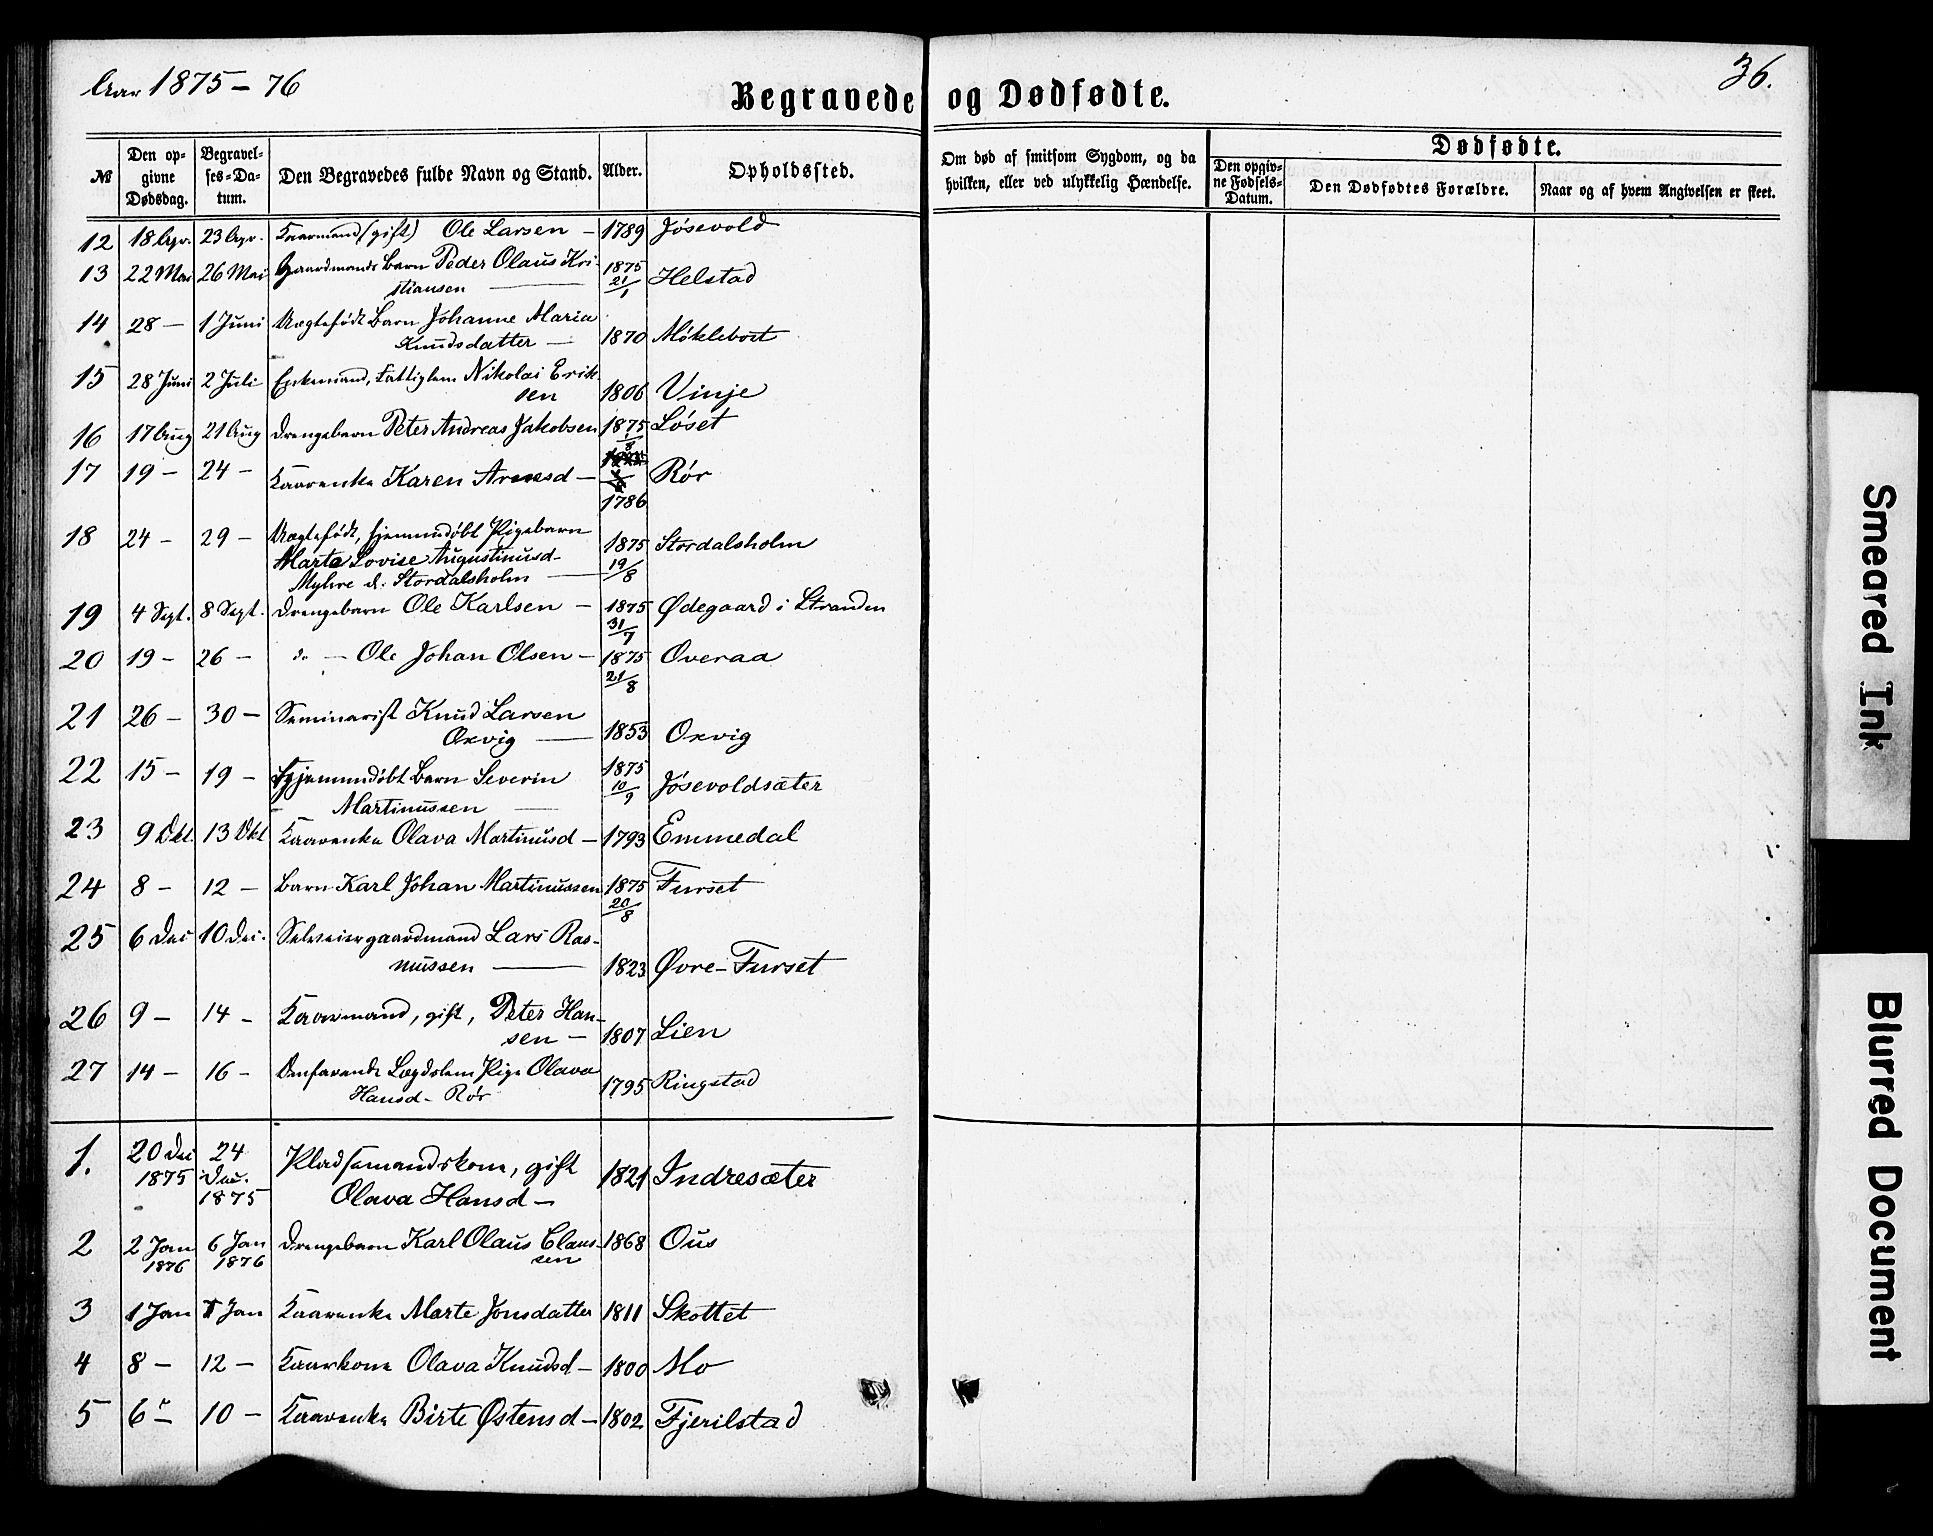 Aar 1875 – 76
Begravede og Dødfødte.
36.
№
Den opgivne Dødsdag.
Begravelses-Datum.
Den Begravedes fulde Navn og Stand.
Alder.
Opholdssted.
Om død af smitsom Sygdom, og da hvilken, eller ved ulykkelig Hændelse.
Dødfødte.
Den opgivne Fødsels-Datum.
Den Dødfødtes Forældre.
Naar og af hvem Angivelsen er skeet.
12 18 Apr. 23 Apr. Kaarmand (gift) Ole Larsen – 1789 Jøsevold
13 22 Mai 26 Mai Gaardmands Barn Peder Olaus Kri- 1875 21/1 Helstad
stiansen
14 28 – 1 Juni Uægtefødt Barn Johanne Maria
Knudsdatter – 1870 Møklebost
15 28 Juni 2 Juli Enkemand, Fattiglem Nikolai Erik-
sen 1806 Vinje
16 17 Aug 21 Aug Drengebarn Peter Andreas Jakobsen 1875 1/8 Løset
17 19 – 24 – Kaarenke Karen Arnesd – Rør
1786
18 24 – 29 – Uægtefødt, hjemmedøbt Pigebarn 1875 Stordalsholm
Marta Lovise Augustinusd- 19/8
Myhre d: Stordalsholm –
19 4 Sept. 8 Sept. Drengebarn Ole Karlsen – 1875 31/7 Ødegaard i Stranden
20 19 – 26 – do – Ole Johan Olsen – 1875 21/8 Overaa
21 26 – 30 – Seminarist Knud Larsen
Oxvig – 1853 Oxvig
22 15 – 19 – Hjemmedøbt Barn Severin 1875 10/9 Jøsevoldsæter
Martinussen –
23 9 Okt. 13 Okt Kaarenke Olava Martinusd – 1793 Emmedal
24 8 – 12 – Barn Karl Johan Martinussen 1875 20/8 Furset
25 6 Dec 10 Dec. Selveiergaardmand Lars Ras-
mussen – 1823 Øvre-Furset
26 9 – 14 – Kaarmand, gift, Peter Han-
sen – 1807 Lien
27 14 – 16 – Lægdslem Pige Olava 1795 Ringstad
Hansd – Rør
1. 20 Dec 1875 24 Dec. 1875 Pladsemandskone, gift 1821 Indresæter
Olava Hansd –
2 2 Jan 1876 6 Jan 1876 Drengebarn Karl Olaus Claus- 1868 Ous
sen
3 1 Jan 7 Jan Kaarenke Marte Jonsdatter 1811 Skottet
4 8 – 12 – Kaarkone Olava Knudsd – 1800 Mo
5 6 – 10 – Kaarenke Birte Østensd – 1802 Fjerilstad
Smeared Ink
Blurred Document